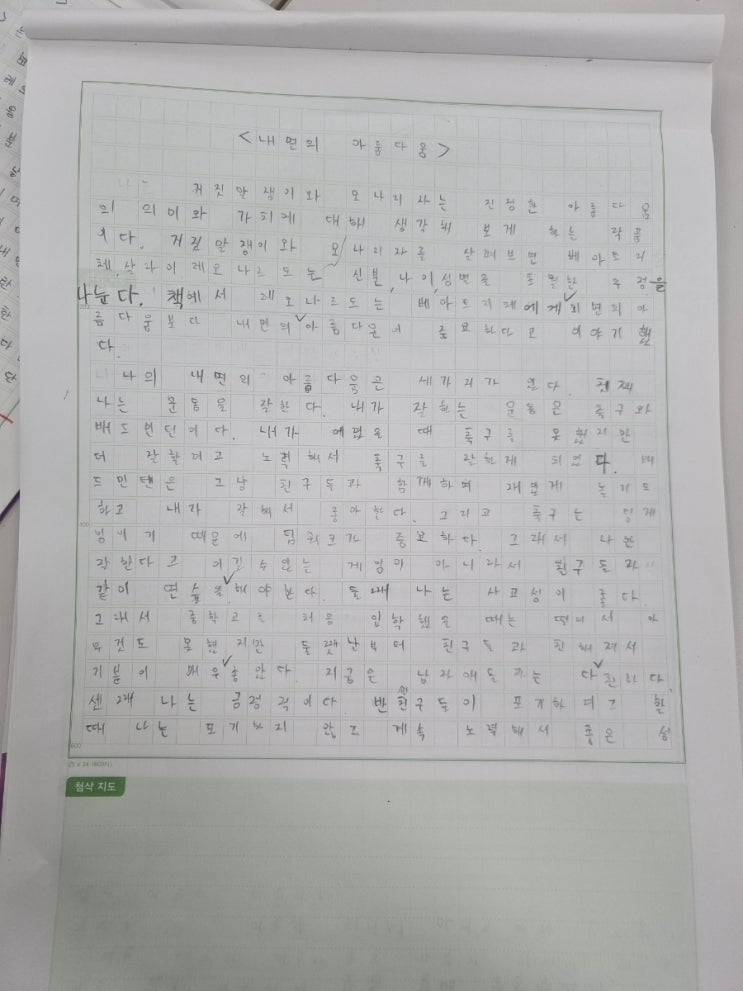 <내면의 아름다움>
거짓말쟁이와 모나리자는 진정한 아름다움
의 의미와 가치에 대해 생각해 보게 하는 작품
이다. 거짓말쟁이와 모나리자를 살펴보면 베아트리
체, 살라이 레오나르도는 신분, 나이, 성별을 초월한 우정을
나눈다. 책에서 레오나르도는 베아트리체에게 외면의 아
름다움보다 내면의 아름다움이 중요하다고 이야기했
다.
나의 내면의 아름다움은 세가지가 있다. 첫째
나는 운동을 잘한다. 내가 잘하는 운동은 축구와
배드민턴이다. 내가 어렸을 때 축구를 못했지만
더 잘할려고 노력해서 축구를 잘하게 되었다. 배
드민턴은 그냥 친구들과 함께하며 재밌게 놀기도
하고 내가 잘해서 좋아한다. 그리고 축구는 단체
게임이기 때문에 팀워크가 중요하다. 그래서 나만
잘한다고 이길 수 있는 게임이 아니라서 친구들과
같이 연습을 해야 한다. 둘째 나는 사교성이 좋다.
그래서 중학교를 처음 입학했을 때는 떨려서 아
무것도 못했지만 둘쨋날부터 친구들과 친해져서
기분이 매우 좋았다. 지금은 남자애들과는 다 친하다.
셋째 나는 긍정적이다. 반 친구들이 포기하려고 할
때 나는 포기하지 않고 계속 노력해서 좋은 성
200
400
600
25 x 24 (600자)
첨삭 지도